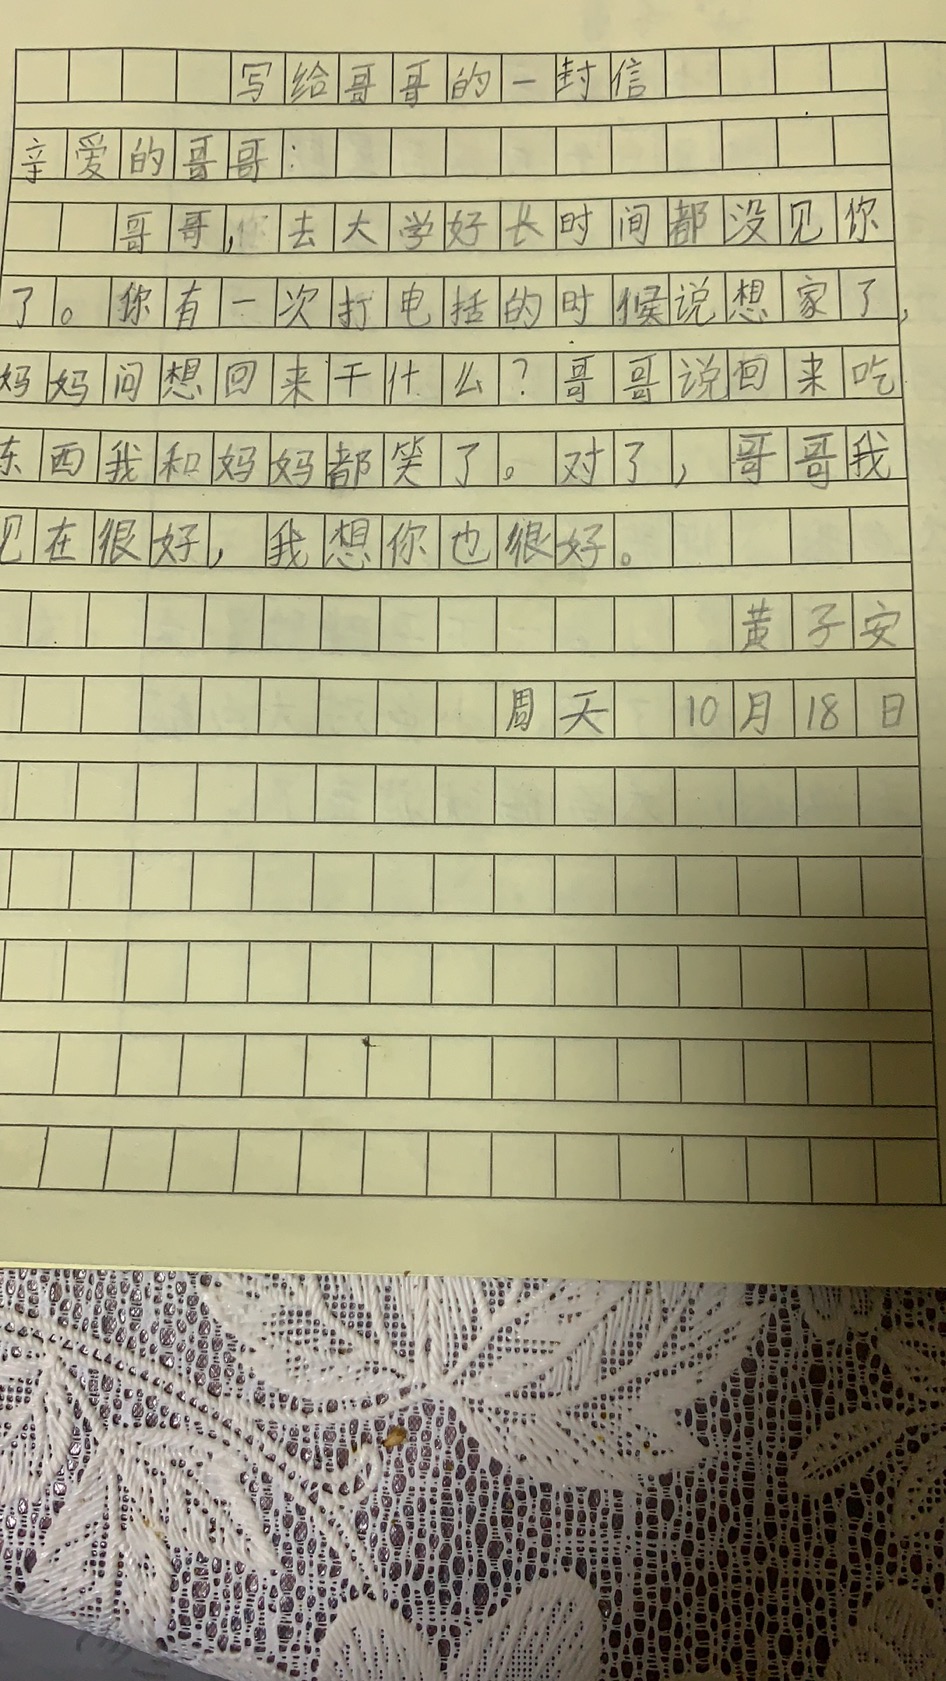 写给哥哥的一封信
亲爱的哥哥：
哥哥，你去大学好长时间都没见你
了。你有一次打电括的时候说想家了，
妈妈问想回来干什么？哥哥说回来吃
东西我和妈妈都笑了。对了，哥哥我
见在很好，我想你也很好。
黄子安
周天 10月18日